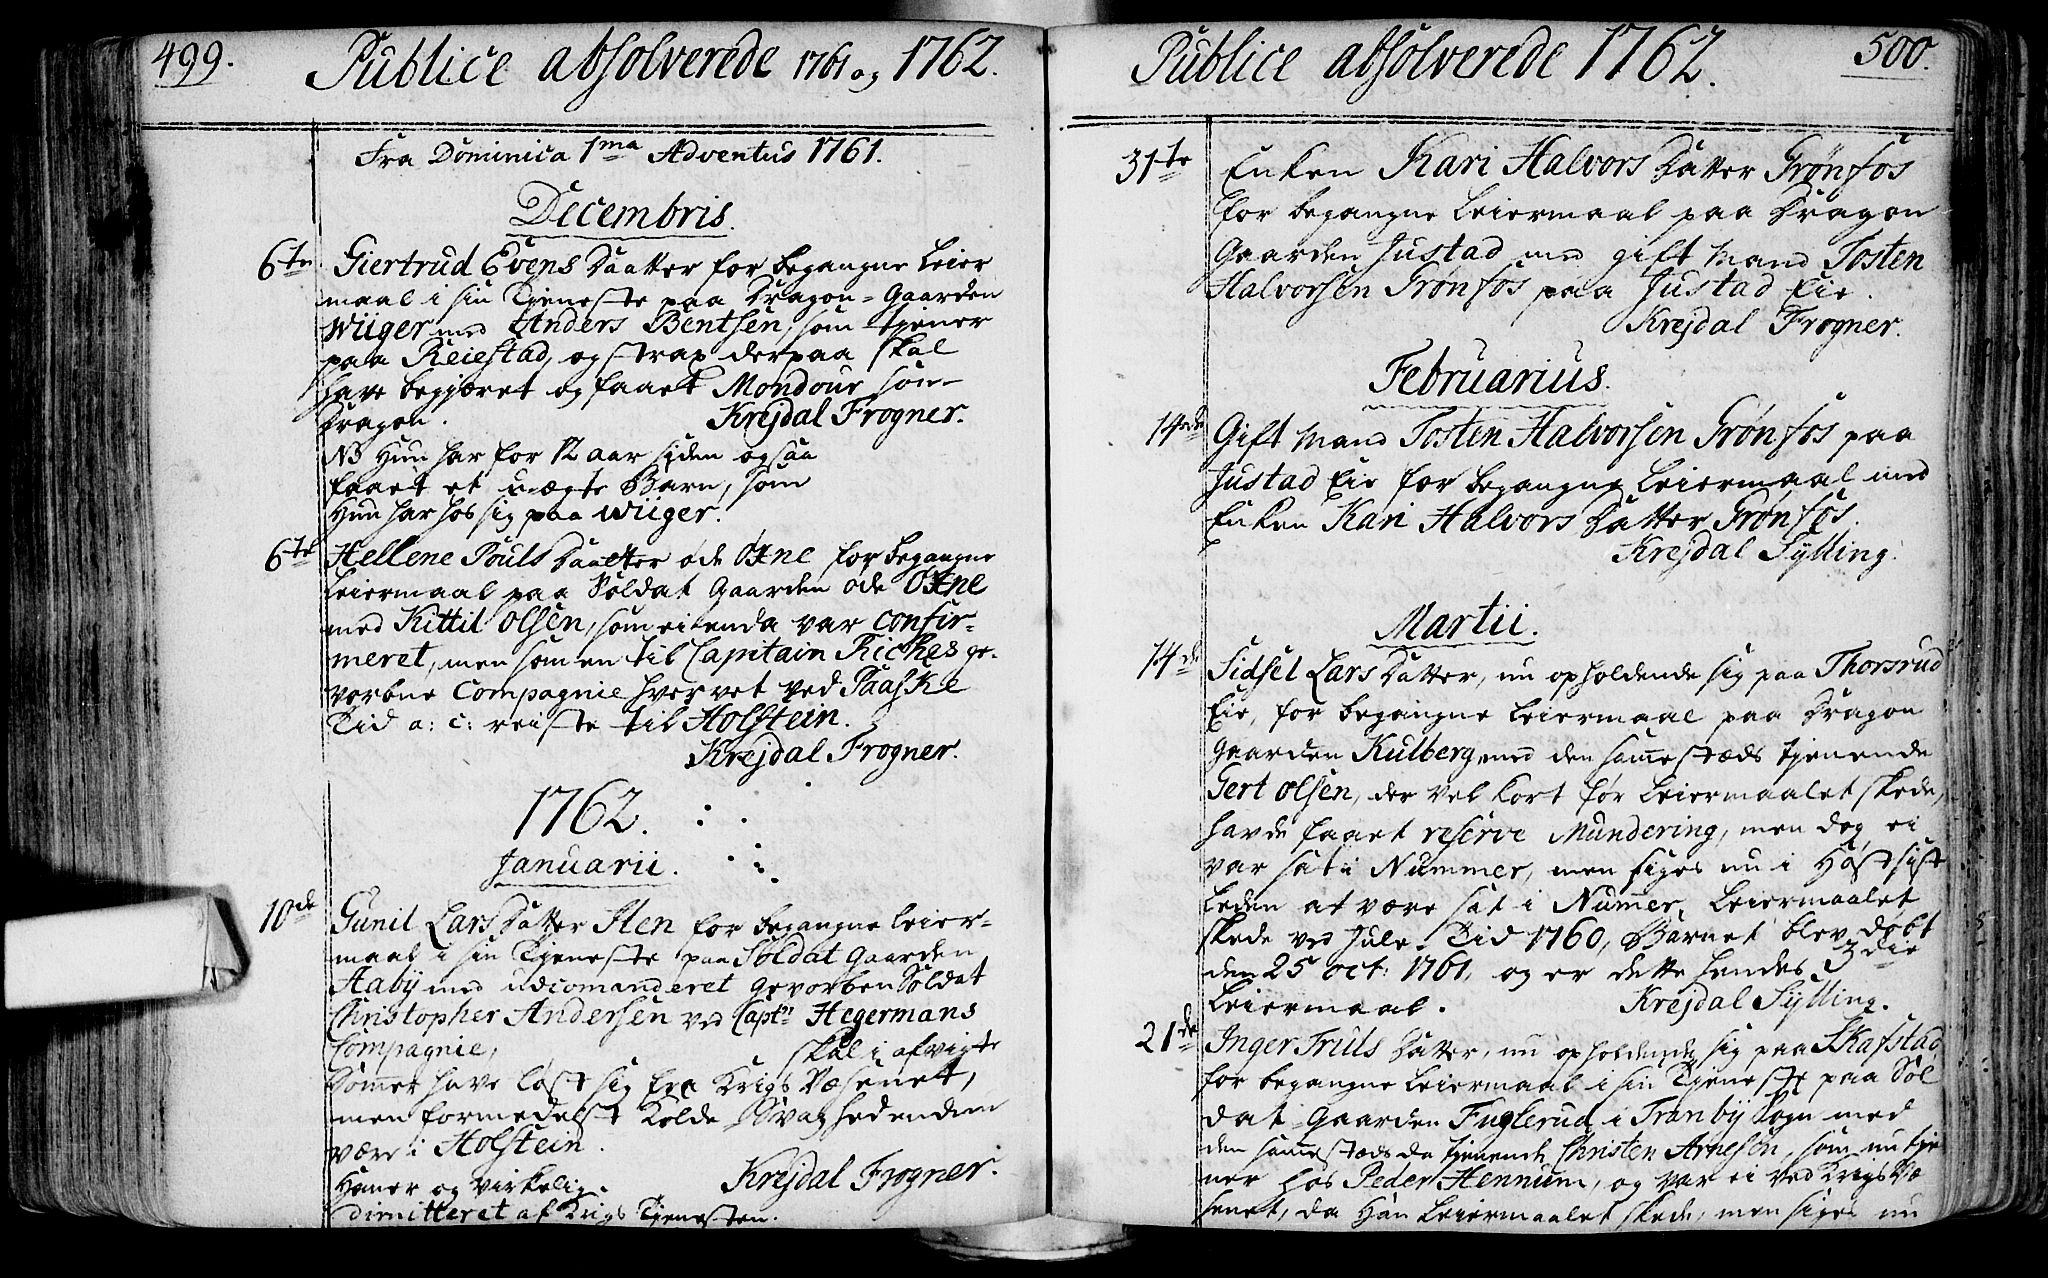 499.
Publice absolverede 1761 og 1762.
Fra Dominica 1ma Adventus 1761.
Decembris.
6te Giertrud Evens Daatter for begangne Leier
maal i sin Tjeneste paa Dragon-Gaarden
Wiiger med Anders Bentsen, som tjener
paa Reiestad, og strax derpaa skal
have begjæret og faaet Mondour som
Dragon. Krejdal Frogner.
NB Hun har for 12 aar siden ogsaa
faaet et uægte Barn, som
Hun har hos sig paa Wiiger.
6te Hellene Pouls Daatter øde Oxne for begangne
Leiermaal paa Soldat Gaarden øde Oxne
med Kittil Olsen, som ei enda var confir-
meret, men som en til Capitain Riches ge-
vorbne Compagnie hvervet ved Paaske
Tid a: c: reiste til Holstein.
Krejdal Frogner.
1762.
Januarii.
10de Gunil Lars Datter Sten for begangne Leier-
maal i sin Tjeneste paa Soldat Gaarden
Aaby med udcomanderet gevorben Soldat
Christopher Andersen ved Captn Hegermans
Compagnie, skal i afvigte
Somer have løst sig fra Krigs Væsenet,
men formedelst Kolde Svaghed endnu
være i Holstein.
Hiemer og virkelig Krejdal Frogner.
dimitteret af Krigs Tjenesten.
Publice absolverede 1762.
500.
31te Enken Kari Halvors Datter Grønfos
for begangne Leiermaal paa Dragon
Gaarden Justad med gift Mand Tosten
Halvorsen Grønfos paa Justad Eie.
Krejdal Frogner.
Februarius.
14de Gift Mand Tosten Halvorsen Grønfos paa
Justad Eie for begangne Leiermaal med
Enken Kari Halvors Datter Grønfos.
Krejdal Sylling.
Martii.
14de Sidsel Lars Datter, nu opholdende sig paa Thorsrud
Eie, for begangne Leiermaal paa Dragon
Gaarden Kulberg med den sammesteds tjenende
Gert Olsen, der vel kort før Leiermaalet skede,
havde faaet reserve Mundering, men dog ei
var sat i Nummer, men siges nu i Høst sist
leden at være sat i Numer, Leiermaalet
skede ved Jule-Tid 1760, Barnet blev døbt
den 25 oct: 1761, og er dette hendes 3die
Leiermaal. Krejdal Sylling.
21de Inger Truls Datter, nu opholdende sig paa Skafstad,
for begangne Leiermaal i sin Tjeneste paa Sol
dat-Gaarden Fuglerud i Tranby Sogn med
den sammesteds da tjenende Christen Arnesen, som nu tje
ner hos Peder Hennum, og var ei ved Krigs Væ
senet, da Han Leiermaalet skede, men siges nu